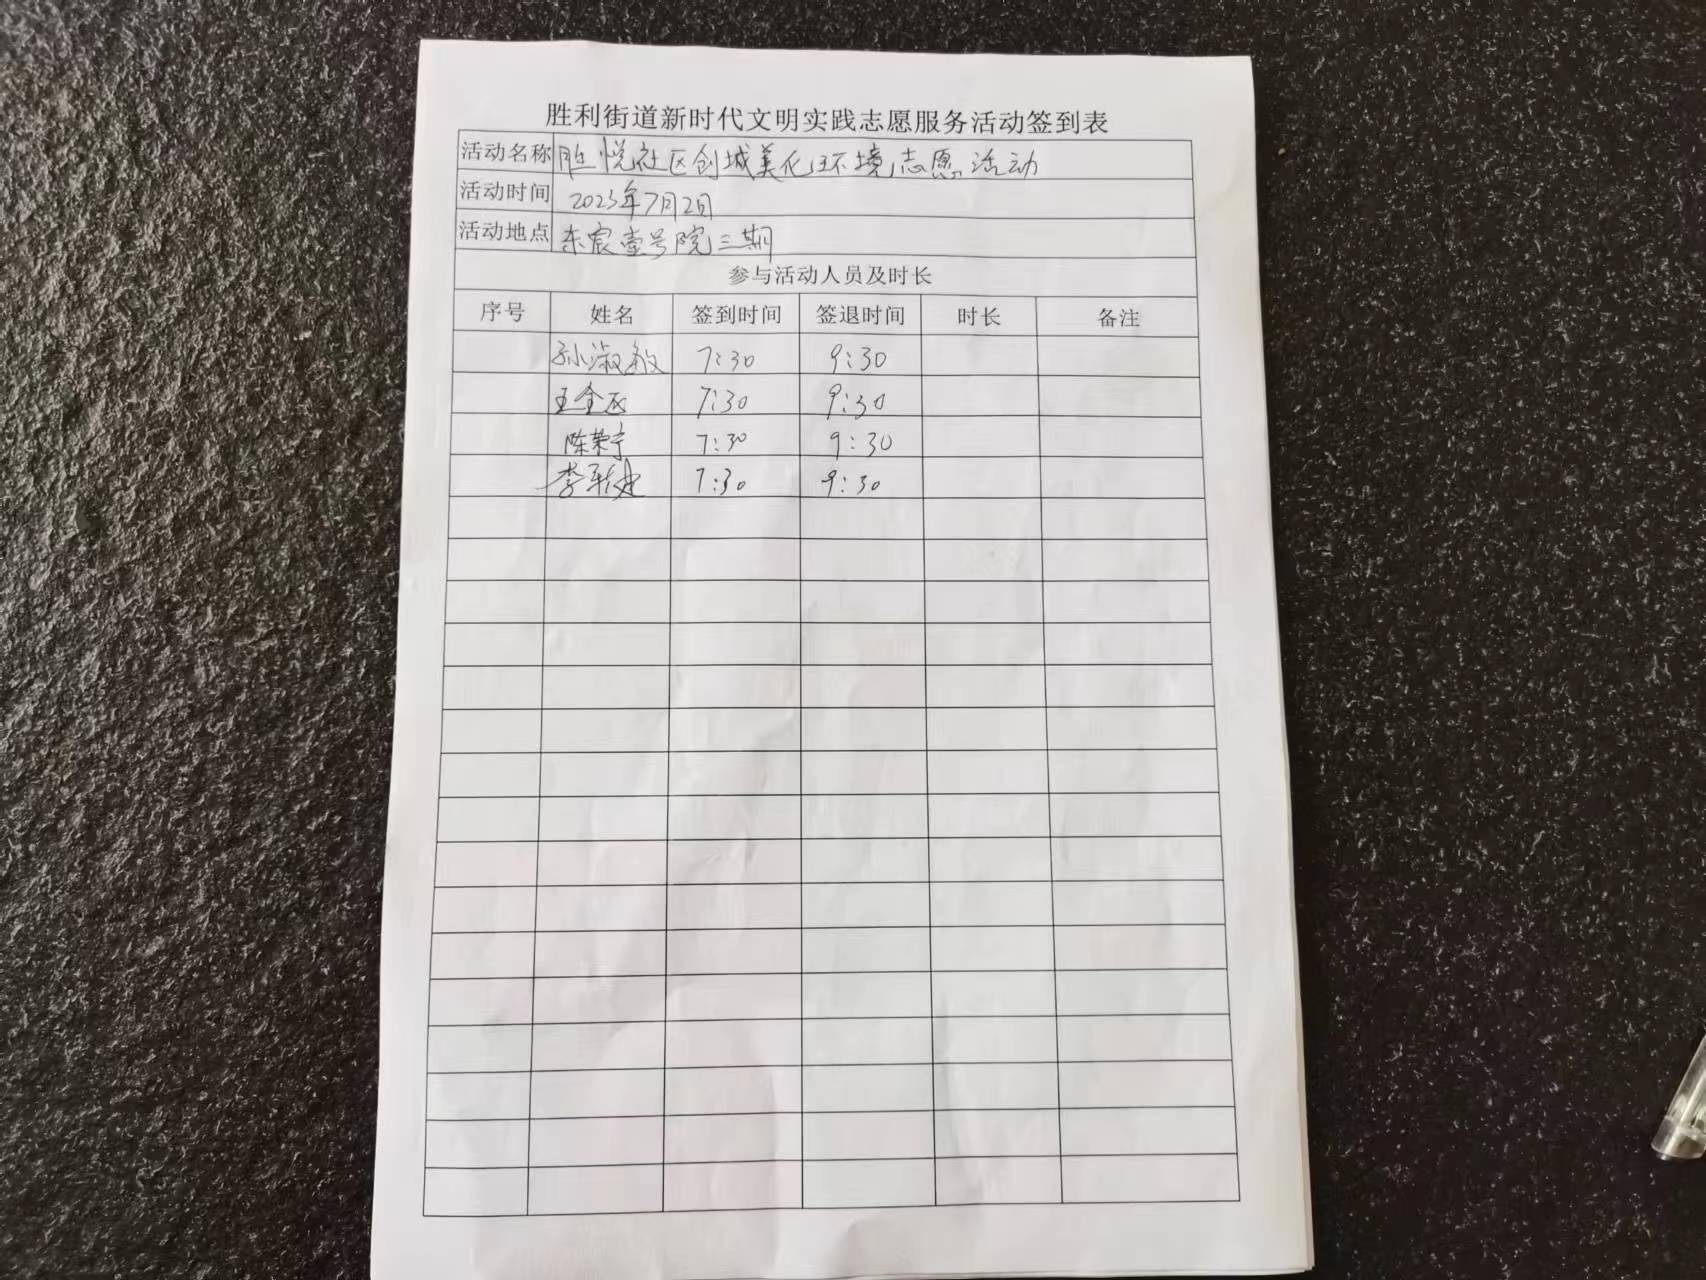 胜利街道新时代文明实践志愿服务活动签到表
活动名称 胜悦社区创城美化环境志愿活动
活动时间 2023年7月2日
活动地点 东宸壹号院三期
参与活动人员及时长
序号 姓名 签到时间 签退时间 时长 备注
孙淑敏 7:30 9:30
王金 7:30 9:30
陈荣宁 7:30 9:30
李 7:30 9:30